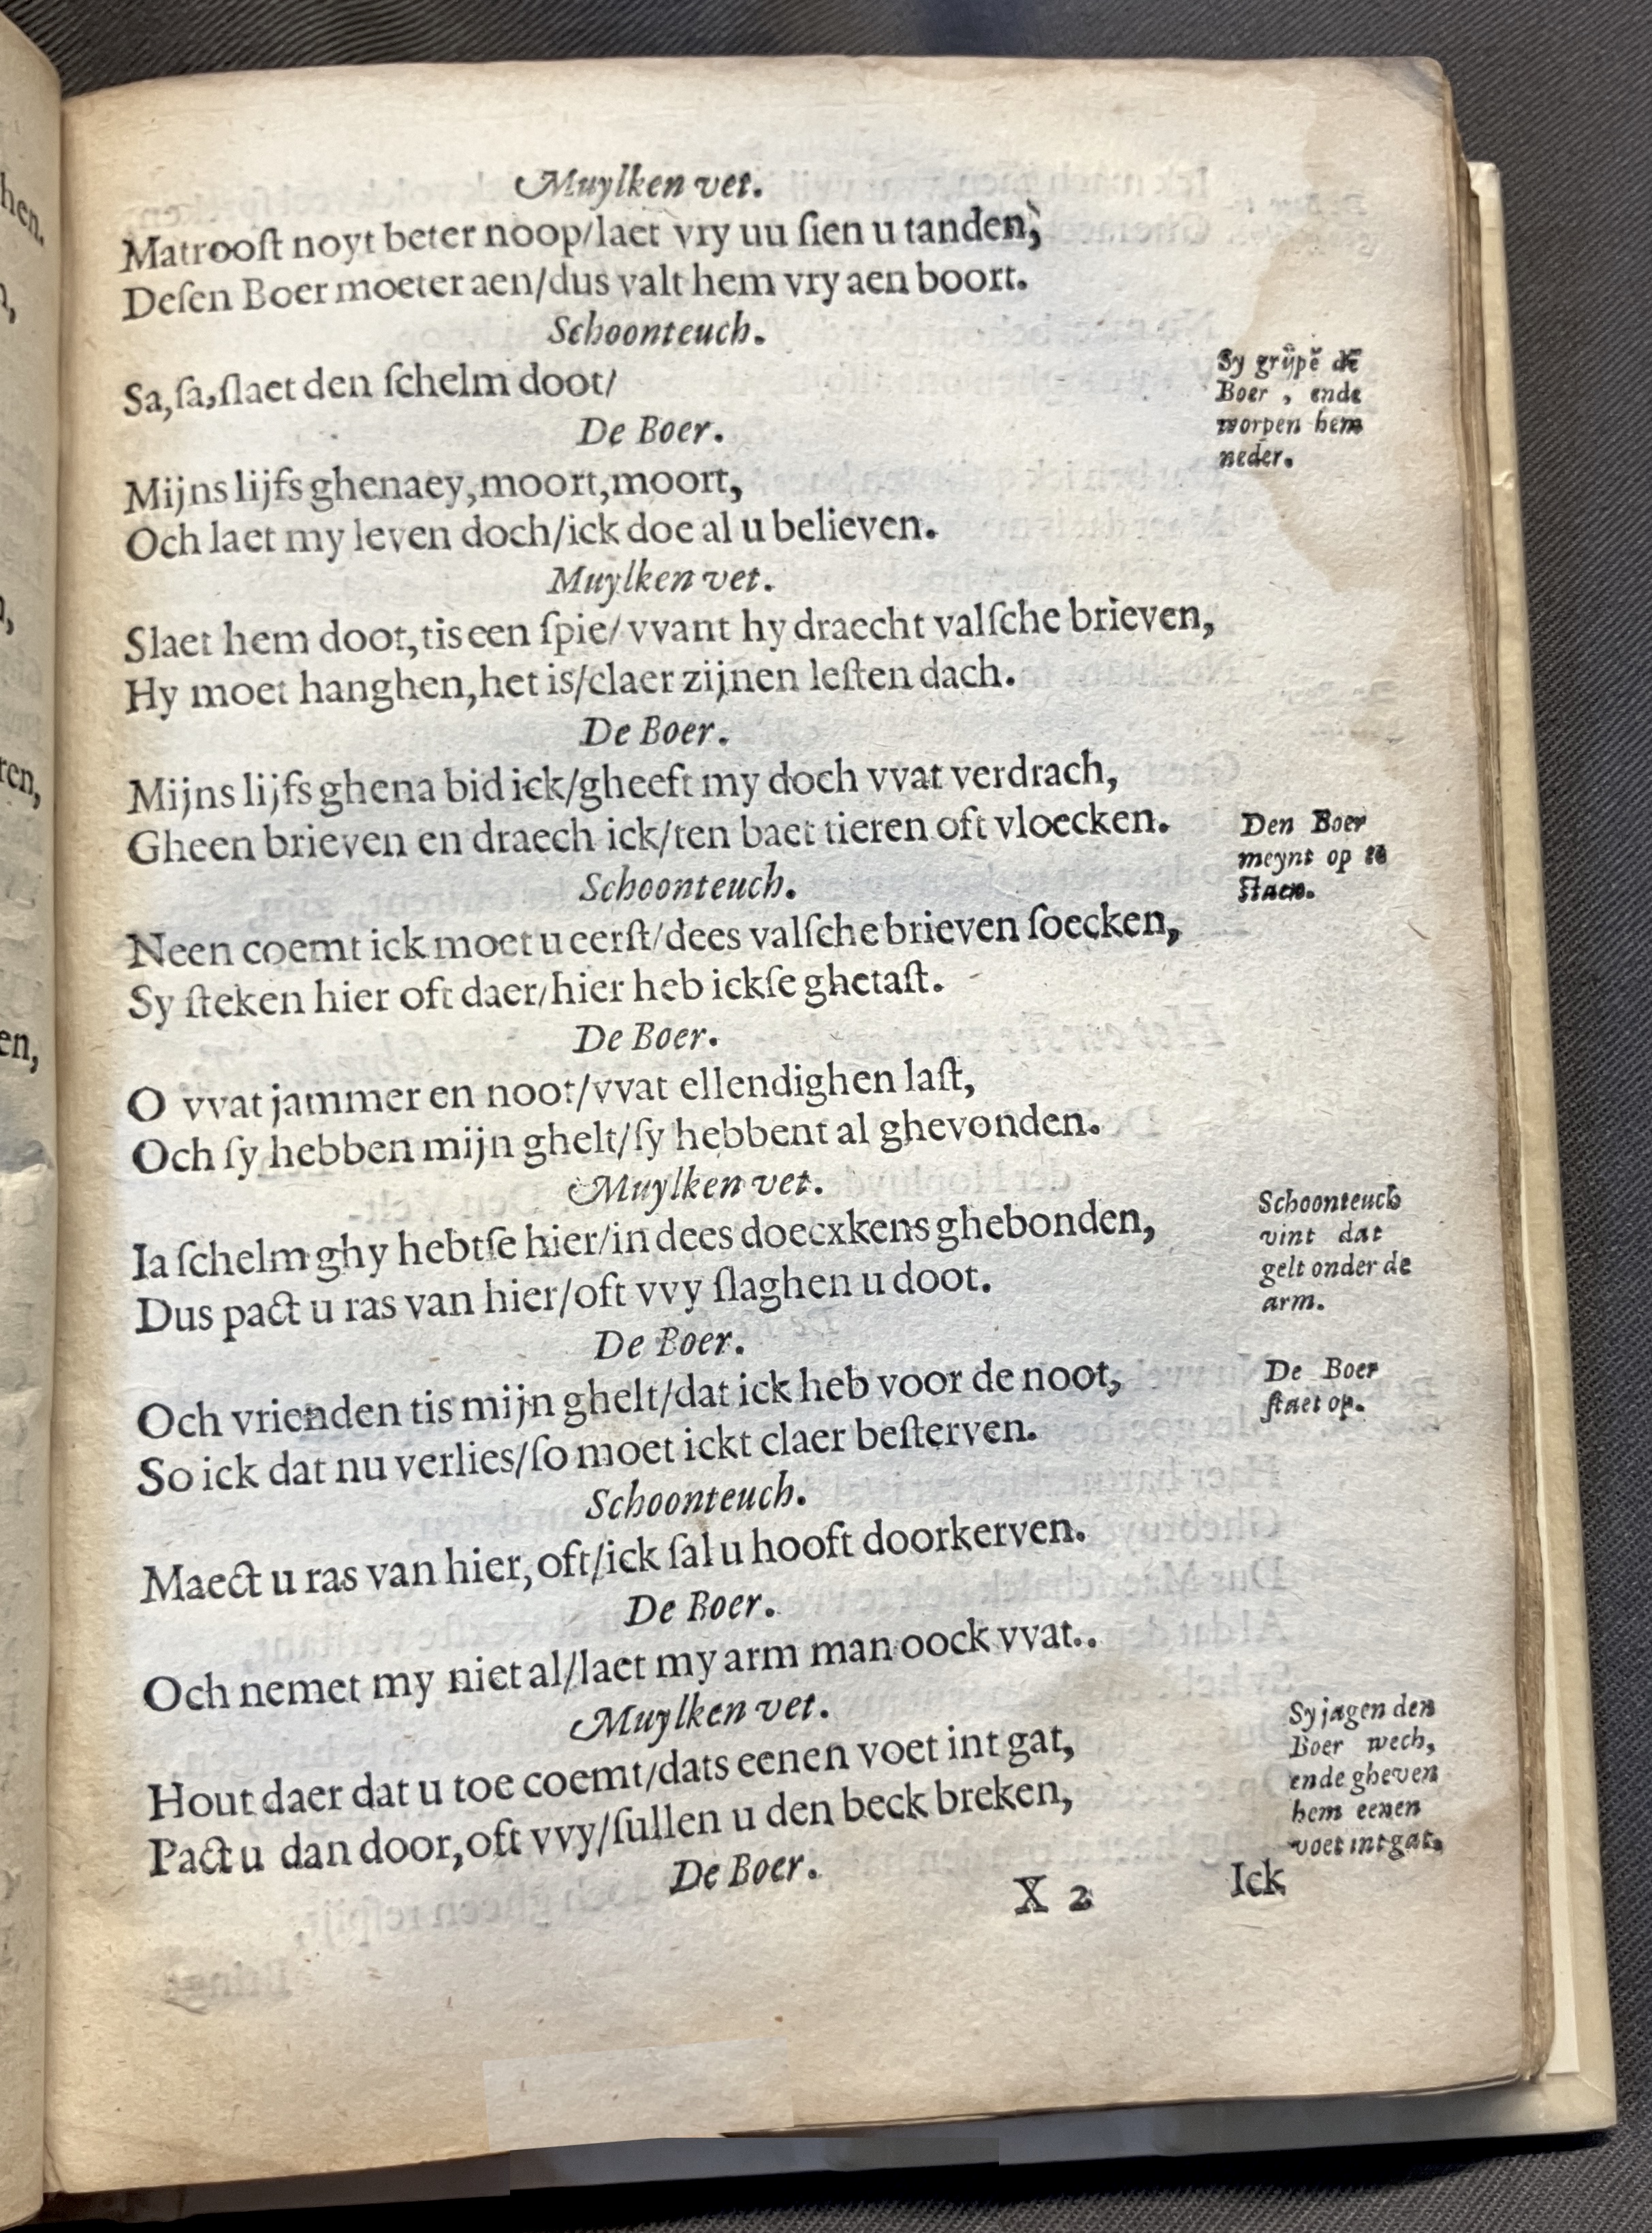 hen.
ren,
en,
Muylken vet.
Matrooſt noyt beter noop/laet vry uu ſien u tanden,
Deſen Boer moeter aen/dus valt hem vry aen boort.
Schoonteuch.
Sa,ſa,ſlaet den ſchelm doot/
Sy grÿpẽ dẽ
Boer , ende
worpen hem
neder.
De Boer.
Mijns lijfs ghenaey,moort,moort,
Och laet my leven doch/ick doe al u believen.
Muylken vet.
Slaet hem doot,tis een ſpie/vvant hy draecht valſche brieven,
Hy moet hanghen,het is/claer zijnen leſten dach.
De Boer.
Mijns lijfs ghena bid ick/gheeft my doch vvat verdrach,
Gheen brieven en draech ick/ten baet tieren oft vloecken.
Den Boer
meynt op te
ſtaen.
Schoonteuch.
Neen coemt ick moet u eerſt/dees valſche brieven ſoecken,
Sy ſteken hier oft daer/hier heb ickſe ghetaſt.
De Boer.
O vvat jammer en noot/vvat ellendighen laſt,
Och ſy hebben mijn ghelt/ſy hebbent al ghevonden.
Muylken vet.
Ia ſchelm ghy hebtſe hier/in dees doecxkens ghebonden,
Dus pact u ras van hier/oft vvy ſlaghen u doot.
Schoonteuch
vint dat
gelt onder de
arm.
De Boer.
Och vrienden tis mijn ghelt/dat ick heb voor de noot,
So ick dat nu verlies/ſo moet ickt claer beſterven.
De Boer
ſtaet op.
Schoonteuch.
Maect u ras van hier, oft/ick ſal u hooft doorkerven.
De Boer.
Och nemet my niet al/laet my arm man oock vvat..
Muylken vet.
Hout daer dat u toe coemt/dats eenen voet int gat,
Pact u dan door,oft vvy/ſullen u den beck breken,
Sy jagen den
Boer wech,
ende gheven
hem eenen
voet int gat.
De Boer.
X 2
Ick